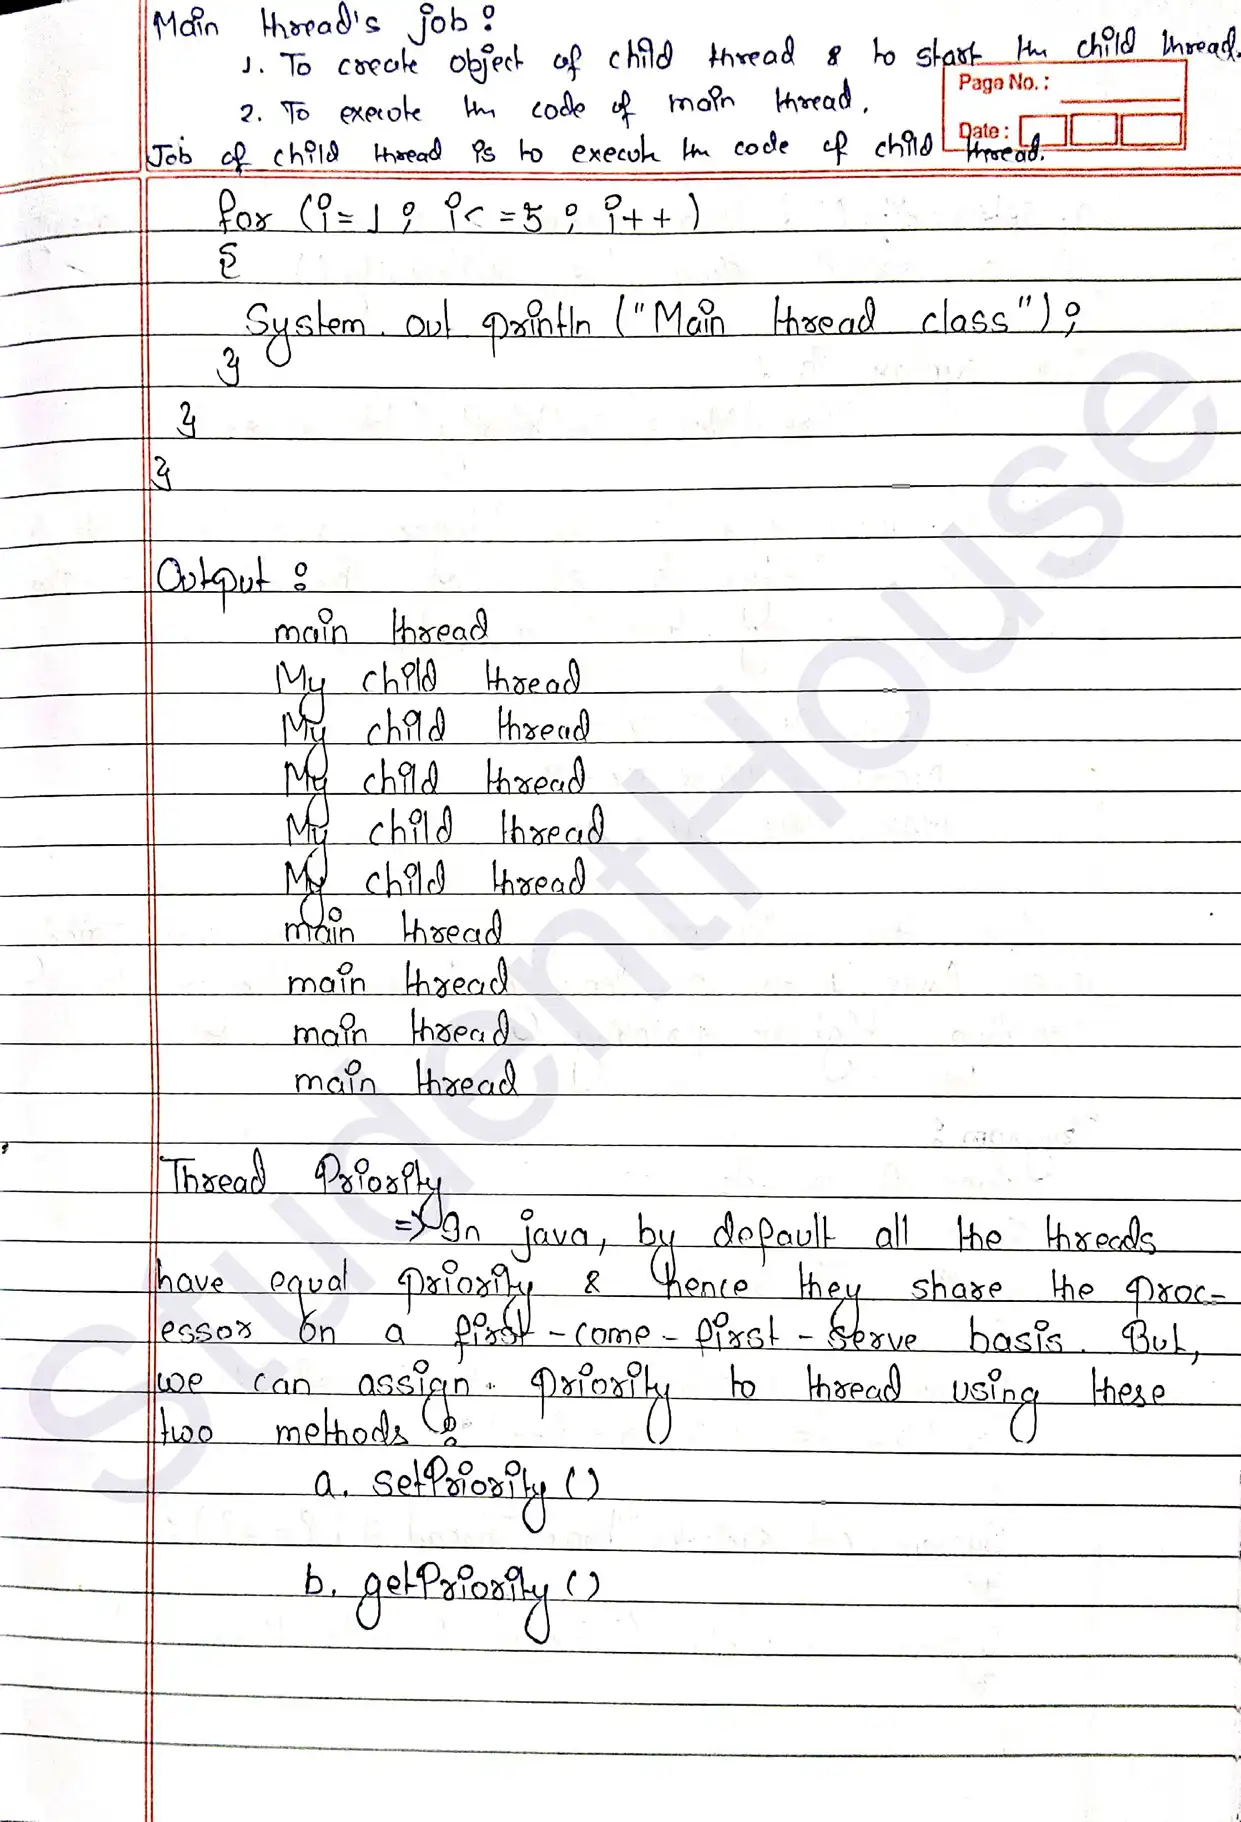 Main thread's job :
1. To create object of child thread & to start the child thread.
2. To execute the code of main thread.
Page No. :
Date :
Job of child thread is to execute the code of child thread.
for (i=1 ; i<=5 ; i++)
{
System. out println ("Main thread class") ;
}
}
}
Output :
main thread
My child thread
My child thread
My child thread
My child thread
My child thread
main thread
main thread
main thread
main thread
Thread Priority
=> In java, by default all the threads
have equal priority & hence they share the proc-
essor on a first-come-first-serve basis. But,
we can assign. priority to thread using these
two methods :
a. setPriority ()
b. getPriority ()
StudentHouse